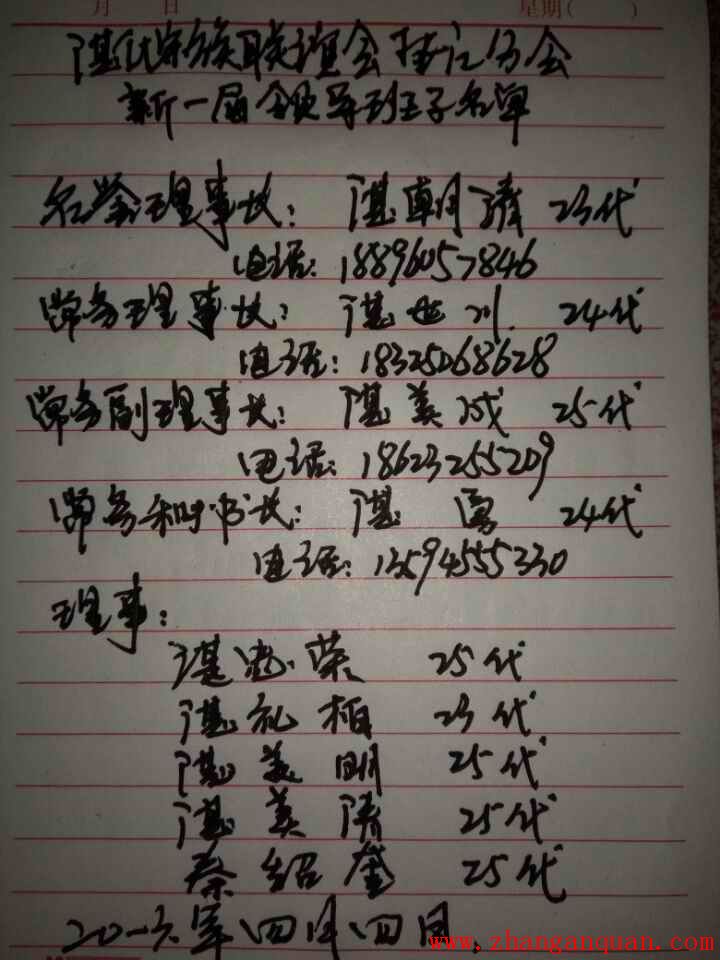 月 日 星期( )
谌氏宗族联谊会 分会
新一届领导班子名单
名誉理事长: 谌朝 23代
电话: 18896057846
常务理事长: 谌世川 24代
电话: 18325068628
常务副理事长: 谌美成 25代
电话: 18623255209
常务秘书长: 谌勇 24代
电话: 13594555330
理事:
谌忠荣 25代
谌礼柏 23代
谌美明 25代
谌美 25代
秦绍奎 25代
二0一六年四月四日.
www.zhanganquan.com